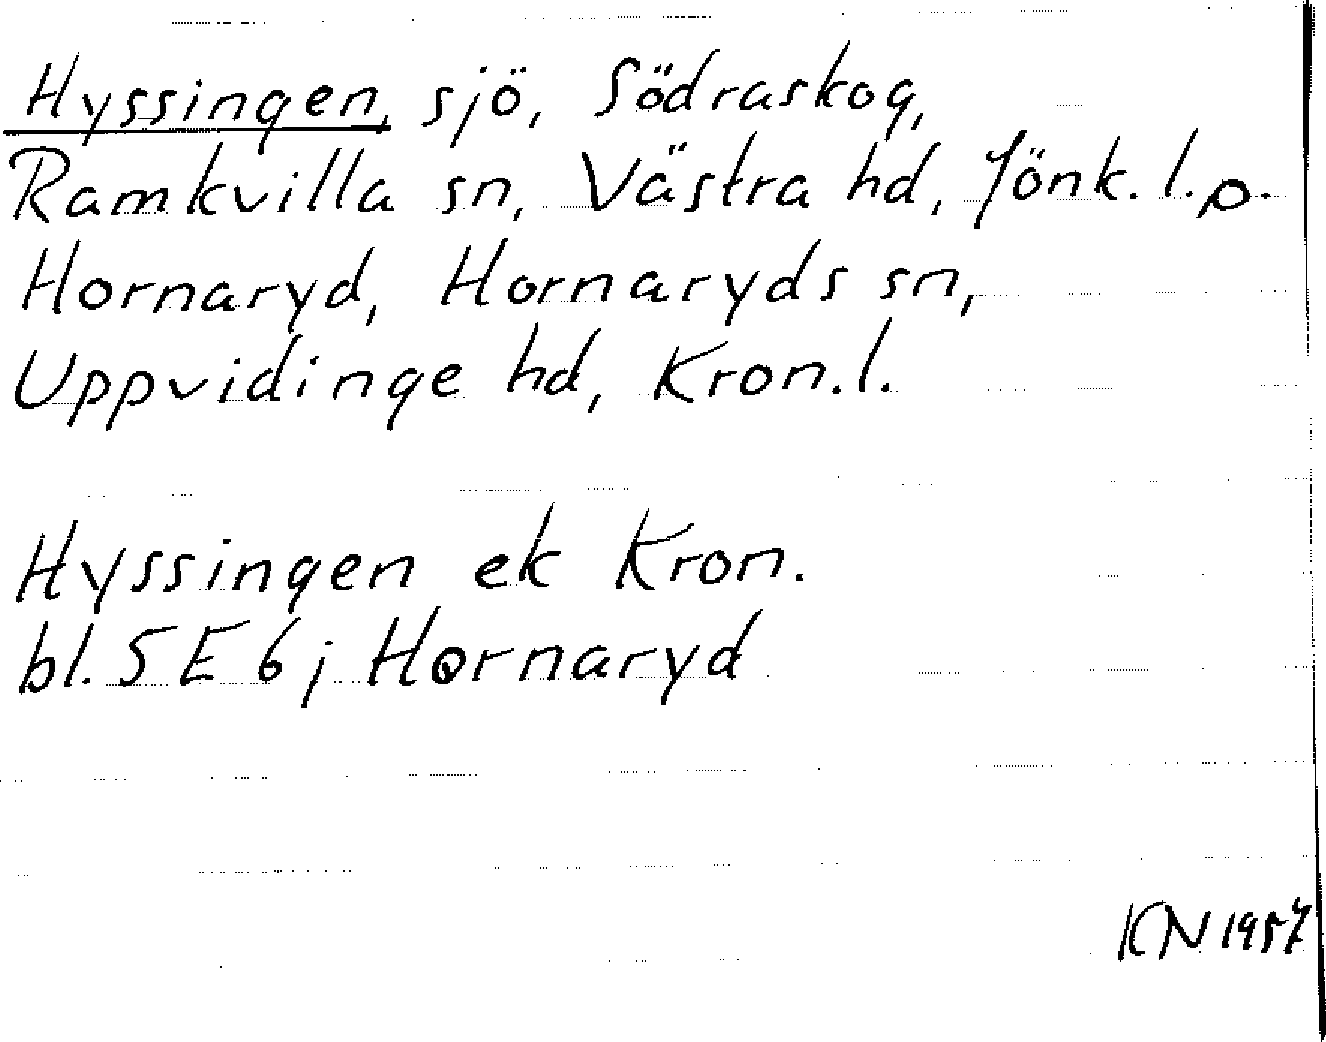 Hyssingen, sjö, Södraskog,
Ramkvilla sn, Västra hd, Jönk. l. o.
Hornaryd, Hornaryds sn,
Uppvidinge hd, Kron. l.
Hyssingen ek Kron.
bl. 5 E 6 j Hornaryd
KN 1957